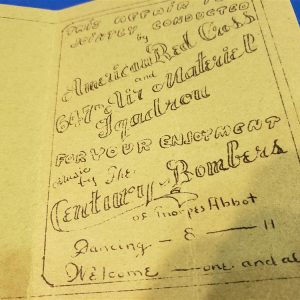 THIS AFFAIR IS
JOINTLY CONDUCTED
by
American Red Cross
and
647th Air Materiel
Squadron
FOR YOUR ENJOYMENT
Music by The
Century Bombers
of Thorpes Abbot
Dancing - 8 - 11
Welcome - one. and al